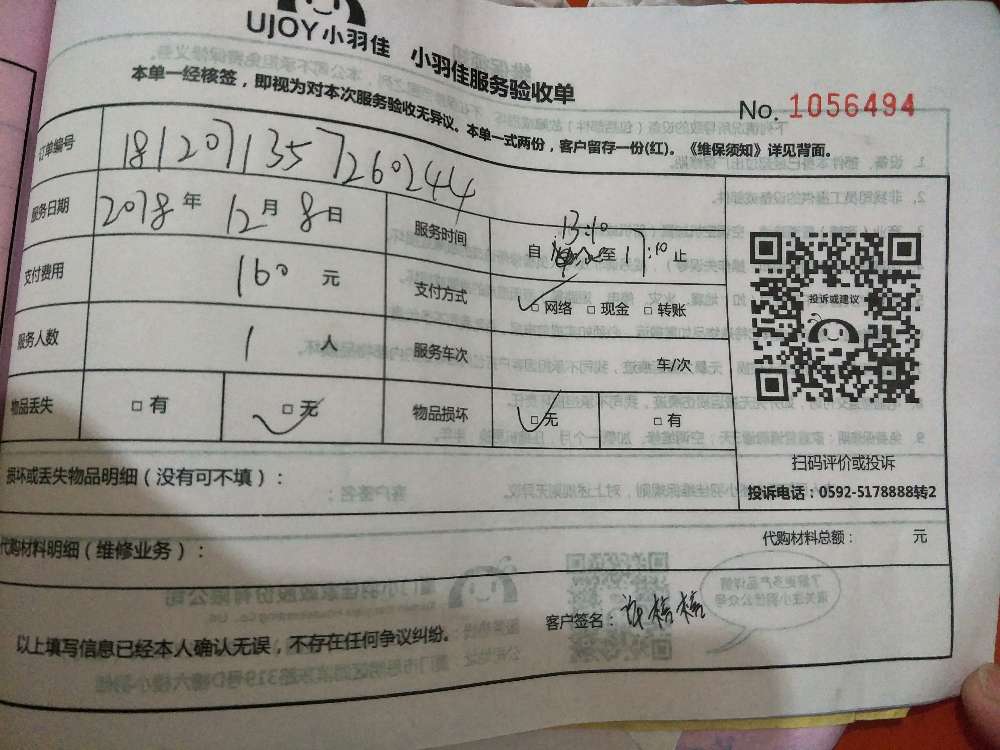 UJOY小羽佳 小羽佳服务验收单
本单一经核签，即视为对本次服务验收无异议。本单一式两份，客户留存一份(红)。《维保须知》详见背面。
No. 1056494
订单编号 1812071357260244
服务日期 2018年12月8日 服务时间 自13:10至17:10止
支付费用 160元 支付方式 □网络 □现金 □转账
服务人数 1人 服务车次 车/次
物品丢失 □有 □无 物品损坏 □无 □有
投诉或建议
扫码评价或投诉
投诉电话：0592-5178888转2
损坏或丢失物品明细（没有可不填）：
代购材料明细（维修业务）： 代购材料总额： 元
以上填写信息已经本人确认无误，不存在任何争议纠纷。 客户签名：